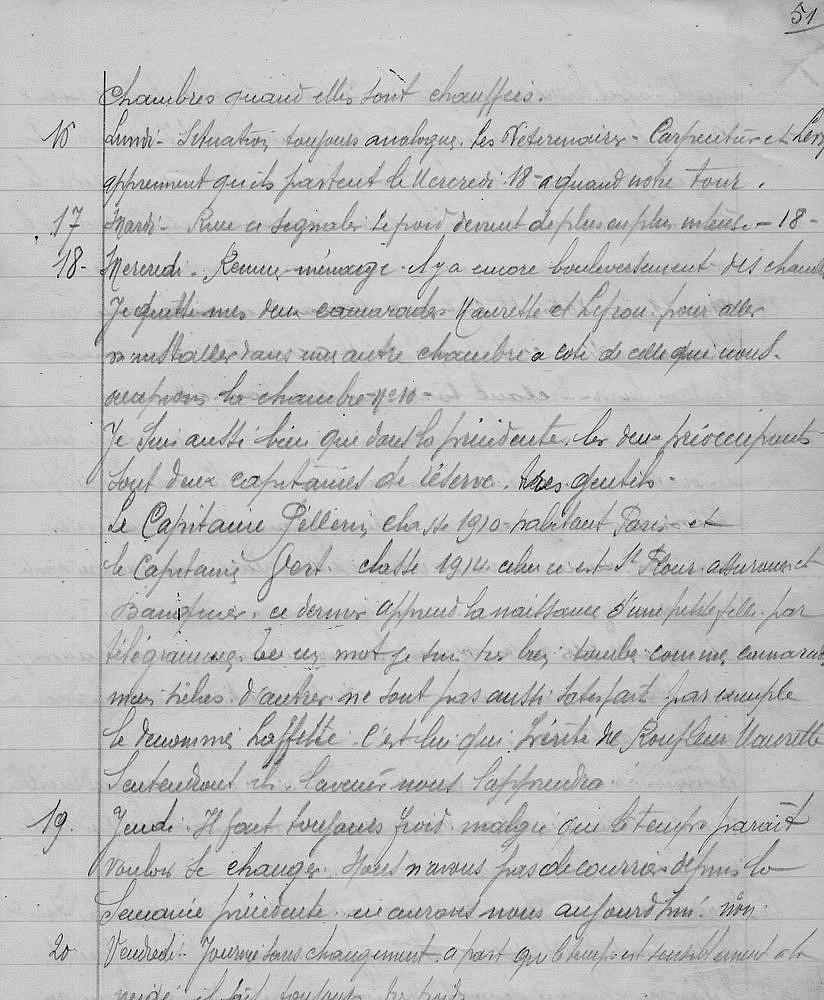 51
Chambres quand elles sont chauffées.
16 Lundi - Situation toujours analogue. les Veterinaires - Carpentier et
apprennent qu'ils partent le Mercredi 18 - a quand notre tour.
17 Mardi - Rien a signaler le froid devient de plus en plus intense - 18 -
18 - Mercredi - Remue ménage - il y a encore bouleversement des
Je quitte mes deux camarades Maurette et Lefrou pour aller
m installer dans une autre chambre a coté de celle que nous
occupions la chambre N° 10 -
Je suis aussi bien que dans la précédente. les deux préoccupants
sont deux capitaines de réserve. très gentils -
Le Capitaine Pellerin, classe 1910 - habitant Paris - et
le Capitaine Vert. classe 1914 celui ci est St Flour. assureur et
Banquier. ce dernier apprend la naissance d'une petite fille par
télégramme. en un mot je suis très bien tombé comme
mais hélas. d'autres ne sont pas aussi satisfait par exemple
le denommé Laffitte. C'est lui qui hérite de Ronfleur Maurette
S'entendront ils. l'avenir nous l'apprendra.
19. Jeudi. Il fait toujours froid malgré que le temps paraît
vouloir se changer. Nous n'avons pas de courrier depuis la
Semaine précédente. en aurons nous aujourd'hui. non.
20 Vendredi - Journée sans changement. a part que le temps est sensiblement a la
neige il fait toujours très froid